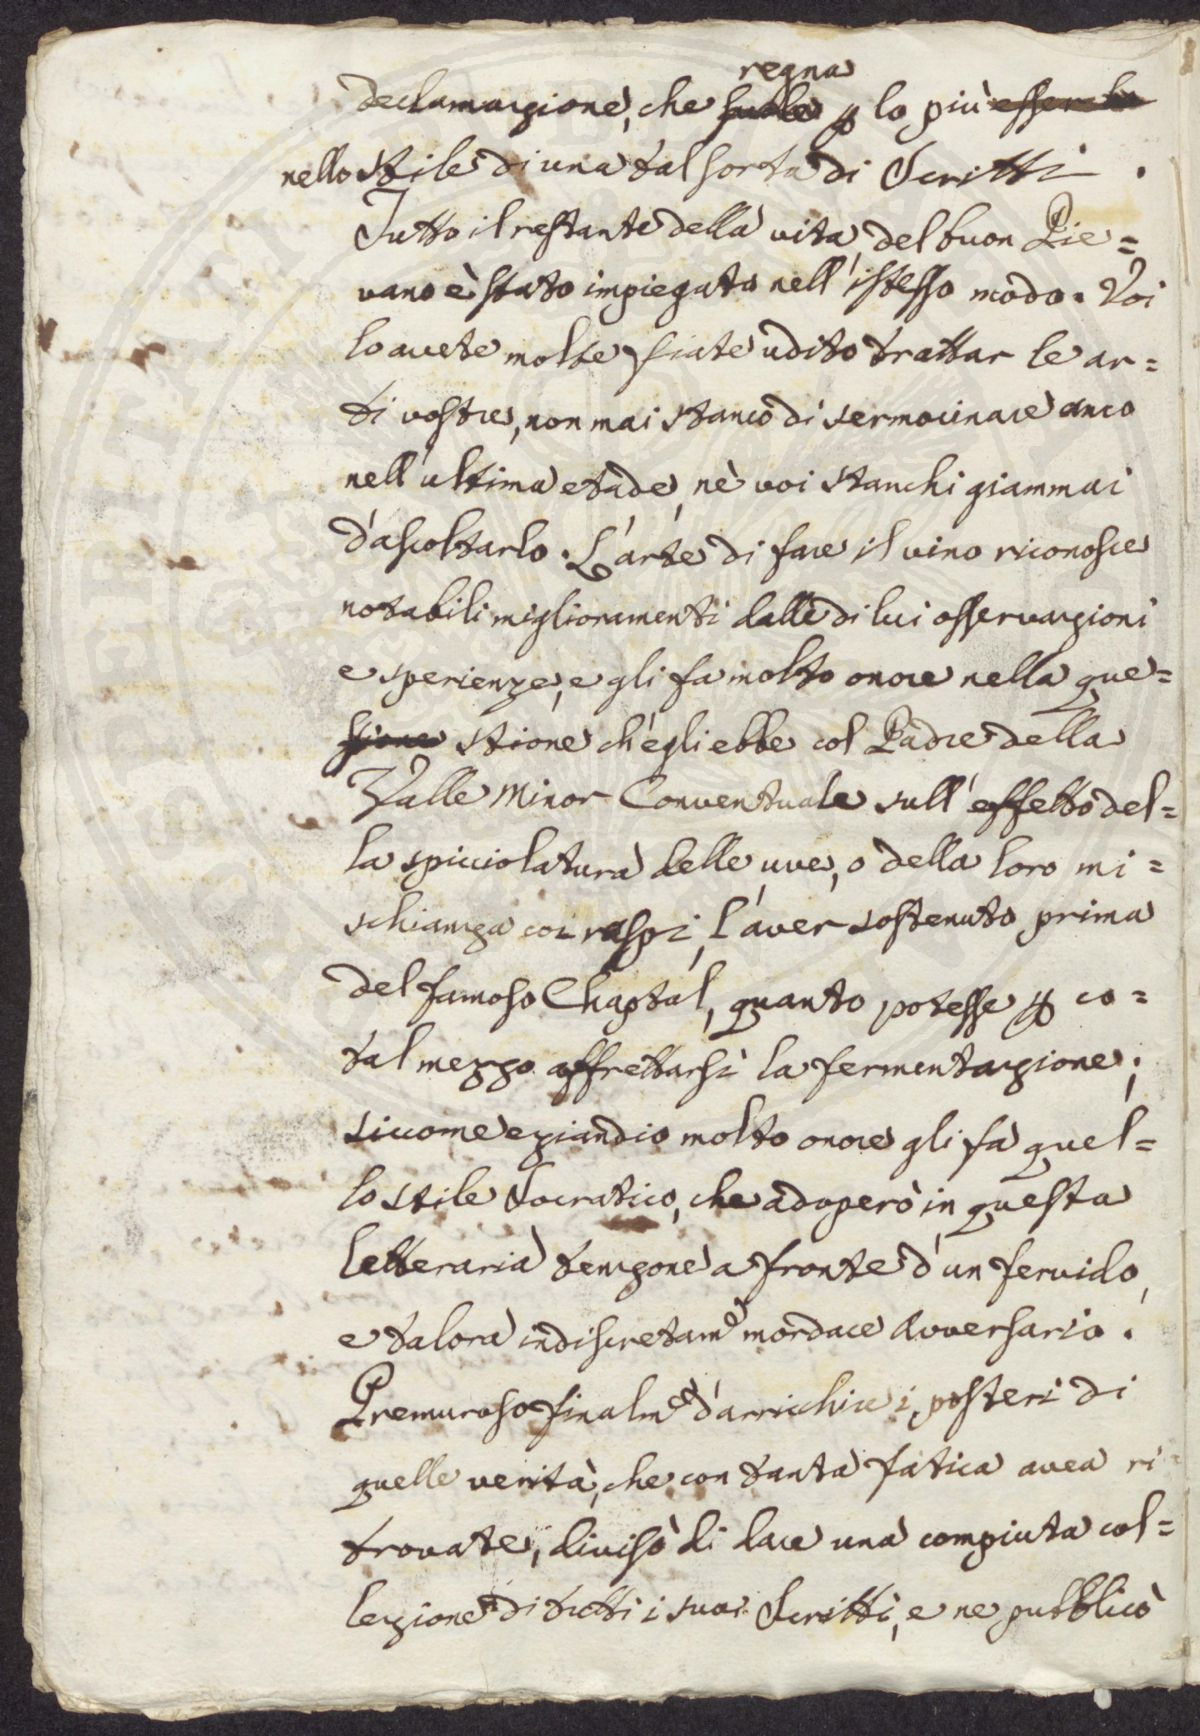 regna
declamazione, che suole p lo più esser la
nello stile di una tal sorta di Scritti.
Tutto il restante della vita del buon Pie=
vano è stato impiegato nell'istesso modo. Voi
lo avete molte fiate udito trattar le ar=
ti vostre, non mai stanco di sermocinare anco
nell'ultima etade, nè voi stanchi giammai
d'ascoltarlo. L'arte di fare il vino riconosce
notabili miglioramenti dalle di lui osservazioni
e sperienze, e gli fa molto onore nella que=
stione stione ch'egli ebbe col Padre della
Valle Minor Conventuale sull'effetto del=
la spicciolatura delle uve, o della loro mi=
schianza coi raspi, l'aver sostenuto prima
del famoso Chaptal, quanto potesse p co=
tal mezzo affrettarsi la fermentazione;
siccome eziandio molto onore gli fa quel=
lo stile Socratico, che adoperò in questa
letteraria tenzone a fronte d'un fervido,
e talora indiscretam.e mordace Avversario.
Premuroso finalm.e d'arricchire i posteri di
quelle verità, che con tanta fatica avea ri=
trovate, divisò di dare una compiuta col=
lezione di tutti i suoi Scritti, e ne pubblicò